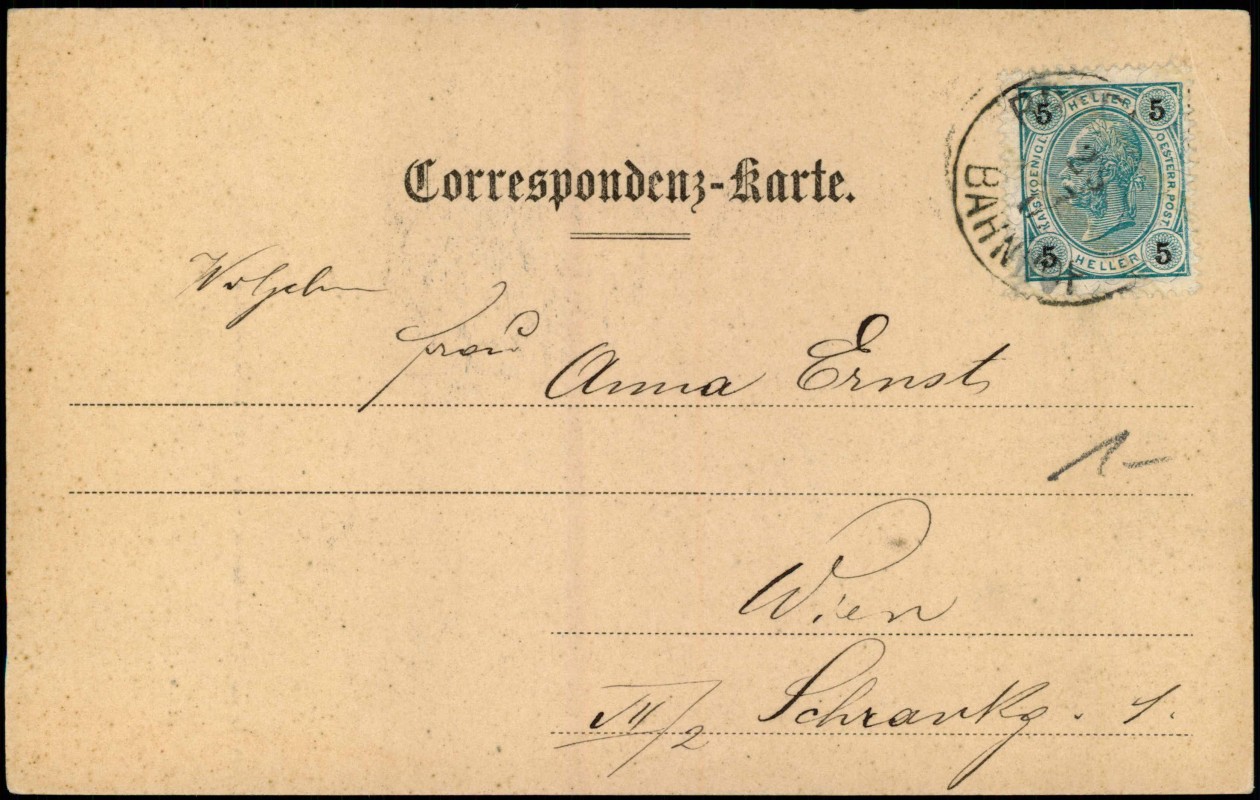 Correspondenz-Karte.
5 HELLER 5
KAIS. KOENIGL.
OESTERR. POST.
5 HELLER 5
23
BAHNHOF
Wolgeborn
Frau Anna Ernst
1-
Wien
VII/2 Schrankg. 1.